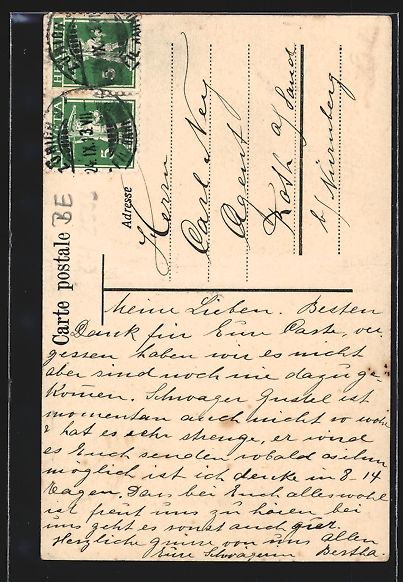 HELVETIA 5
HELVETIA 5
24.IX.13.VII
BE
Carte postale
Adresse
Herrn
Carl Ney
Agent
Roth a/Sand
b/Nürnberg
Meine Lieben. Besten
Dank für Eure Carte, ver
gessen haben wir es nicht
aber sind noch nie dazu ge
komen. Schwager Gustel ist
momentan auch nicht so wohl
& hat es sehr strenge, er wird
es Euch senden sobald es ihm
möglich ist ich denke in 8-14
Tagen. Dass bei Euch alles wohl
ist freut uns zu hören bei
uns geht es sonst auch gut.
Herzliche grüsse von uns allen
Eure Schwägerin Bertha.